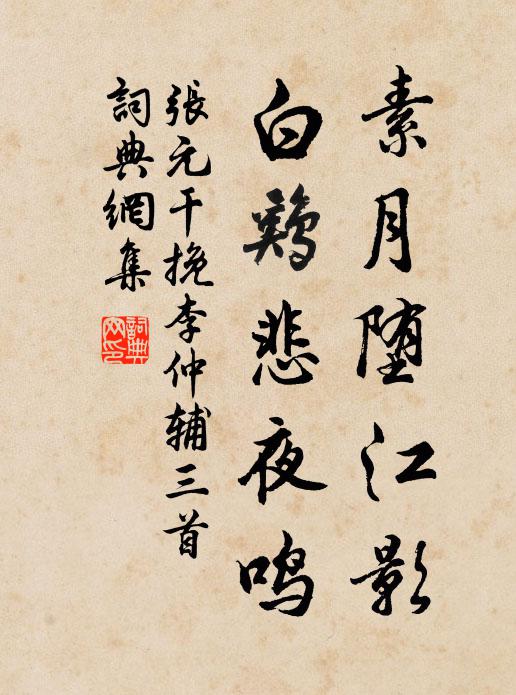 素月堕江影
白鷄悲夜鸣
張元干挽李仲辅三首
詞典網集
詞典
网印